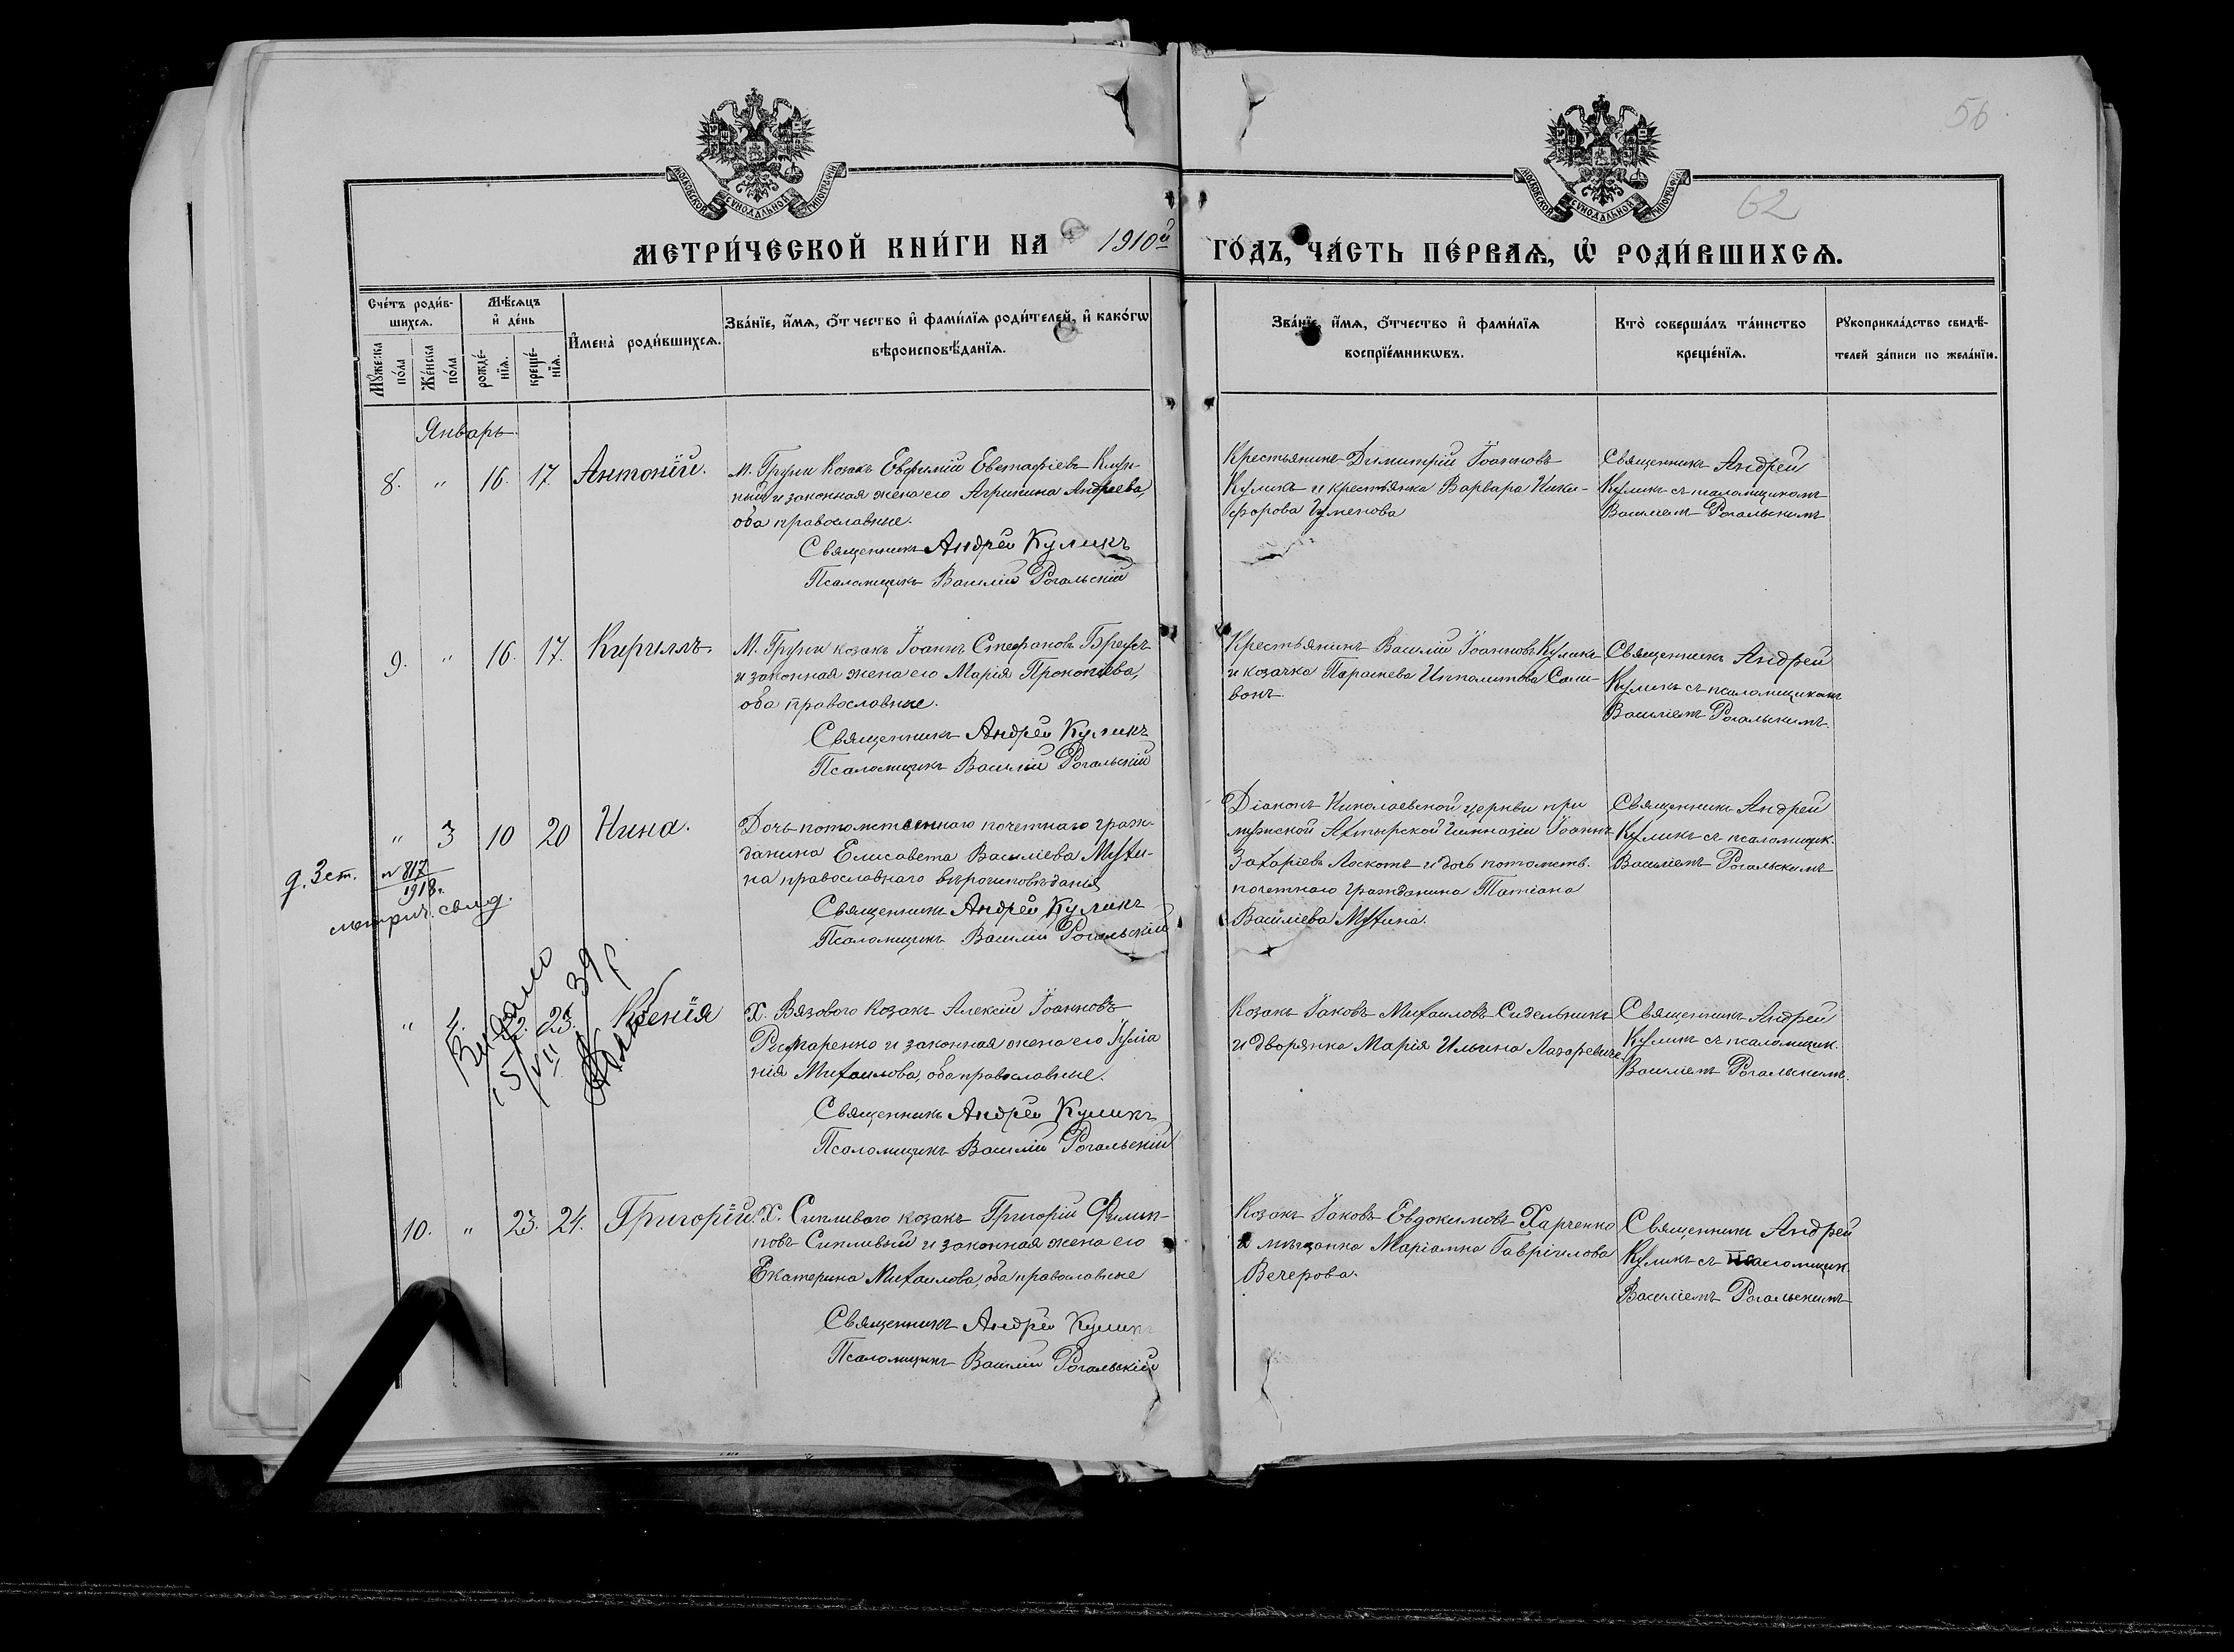 56
62
МОСКОВСКОЙ СѴНОДАЛЬНОЙ ТИПОГРАФІИ
МОСКОВСКОЙ СѴНОДАЛЬНОЙ ТИПОГРАФІИ
МЕТРИ́ЧЕСКОЙ КНИ́ГИ НА 1910й ГО́ДЪ, ЧА́СТЬ ПЕ́РВАѦ, Ѡ҆ РОДИ́ВШИХСѦ.
Сче́тъ роди́в-
шихсѧ.
Мꙋ́жеска
по́ла
Же́нска
по́ла
Мѣ́сѧцъ
и҆ де́нь
рожде́-
нїѧ.
креще́-
нїѧ.
И҆мена̀ роди́вшихсѧ.
Зва́нїе, и҆́мѧ, ѻ҆́тчество и҆ фами́лїѧ роди́телей, и҆ како́гѡ
вѣроисповѣ́данїѧ.
Зва́нїе, и҆́мѧ, ѻ҆́тчество и҆ фами́лїѧ
воспрїе́мникѡвъ.
Кто̀ соверша́лъ та́инство
креще́нїѧ.
Рꙋкоприкла́дство свидѣ́-
телей за́писи по жела́нїю.
Январь
8. " 16. 17. Антоній.
м. Груни Козакъ Евфимій Евстафіевъ
ный и законная жена его Агрипина Андреева,
оба православные.
Священникъ Андрей Куликъ
Псаломщикъ Василій Рогальскій
Крестьянинъ Димитрій Іоанновъ
Куликъ и крестьянка Варвара Ники-
форова Гуменова
Священникъ Андрей
Куликъ съ псаломщикомъ
Василіемъ Рогальскимъ
9. " 16. 17. Кириллъ.
М. Груни козакъ Іоаннъ Стефановъ
и законная жена его Марія Прокопіева,
оба православные.
Священникъ Андрей Куликъ
Псаломщикъ Василій Рогальскій
Крестьянинъ Василій Іоанновъ Куликъ
и козачка Параскева Ипполитова Сали-
вонъ.
Священникъ Андрей
Куликъ съ псаломщикомъ
Василіемъ Рогальскимъ.
" 3 10 20 Нина.
№ 817
1918г.
метрич. свид.
Дочь потомственнаго почетнаго граж-
данина Елисавета Василіева Мухи-
на православнаго вѣроисповѣданія
Священникъ Андрей Куликъ
Псаломщикъ Василій Рогальскій
Діаконъ Николаевской церкви при
мужской Ахтырской гимназіи Іоаннъ
Захаріевъ Ласкотъ и дочь потомств.
почетнаго гражданина Татіана
Василіева Мухина.
Священникъ Андрей
Куликъ съ псаломщик.
Василіемъ Рогальскимъ
" 4. 22. 23. Ксенія
Видано
15/VII 39 р
Х. Вязового Козакъ Алексій Іоанновъ
и законная жена его Іулiа
нія Михаилова, оба православные.
Священникъ Андрей Куликъ
Псаломщикъ Василій Рогальскій
Козакъ Іаковъ Михаиловъ Сидельникъ
и дворянка Марія Ильина Лазаревичъ
Священникъ Андрей
Куликъ съ псаломщик.
Василіемъ Рогальскимъ.
10. " 23. 24. Григорій.
Х. Сипливаго козакъ Григорій Филип-
повъ Сипливый и законная жена его
Екатерина Михаилова, оба православные
Священникъ Андрей Куликъ
Псаломщикъ Василій Рогальскій
Козакъ Іаковъ Евдокимовъ Харченко
и мѣщанка Маріамна Гавріилова
Вечерова.
Священникъ Андрей
Куликъ съ псаломщик.
Василіемъ Рогальскимъ